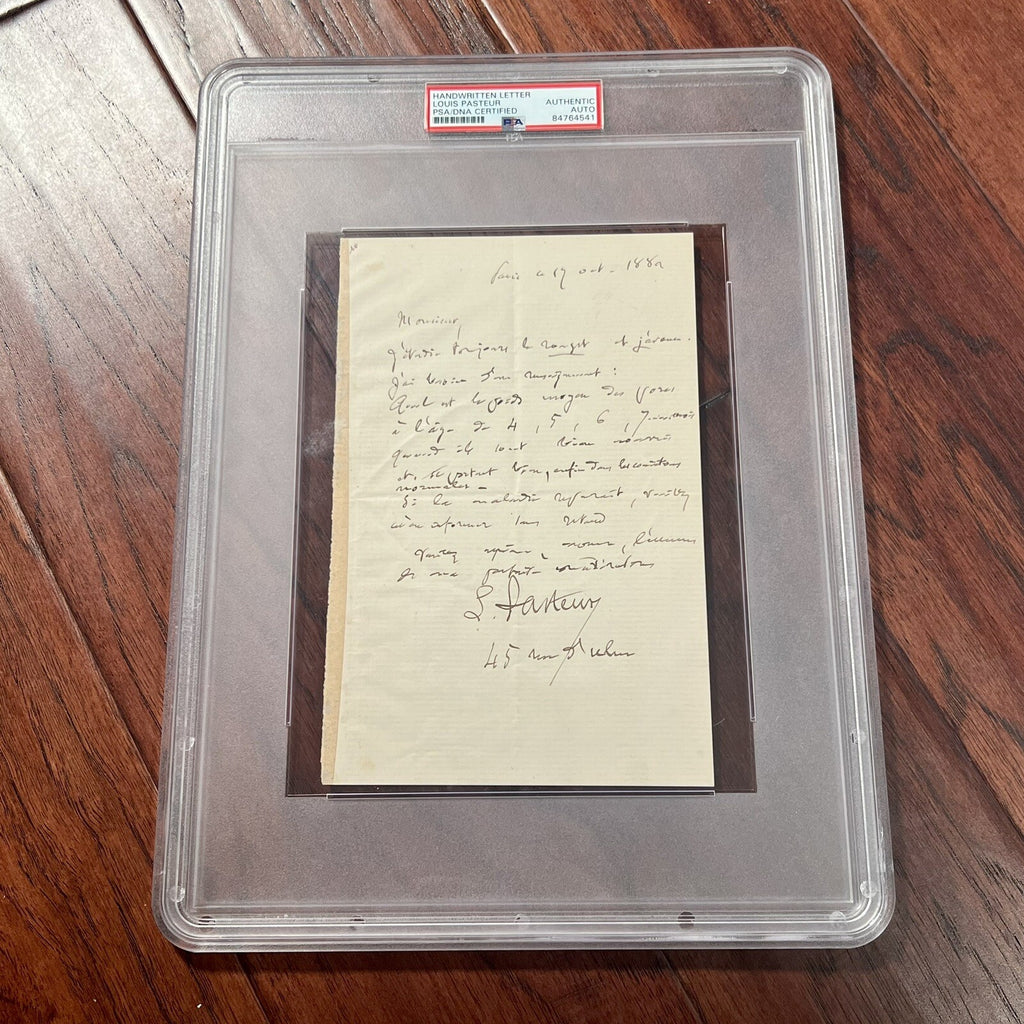 HANDWRITTEN LETTER
LOUIS PASTEUR
PSA/DNA CERTIFIED
AUTHENTIC
AUTO
84764541
PSA
Paris ce 19 oct. 1882
Monsieur,
J'étudie toujours le rouget et j'avance.
J'ai besoin d'un renseignement :
Quel est le poids moyen des porcs
à l'âge de 4, 5, 6, 7
quand ils sont bien nourris
et se portent bien, enfin dans les conditions
normales.
Si la maladie reparaît, veuillez
m'en informer sans retard
Veuillez agréer, monsieur, l'assurance
de ma parfaite considération
L. Pasteur
45 rue d'Ulm